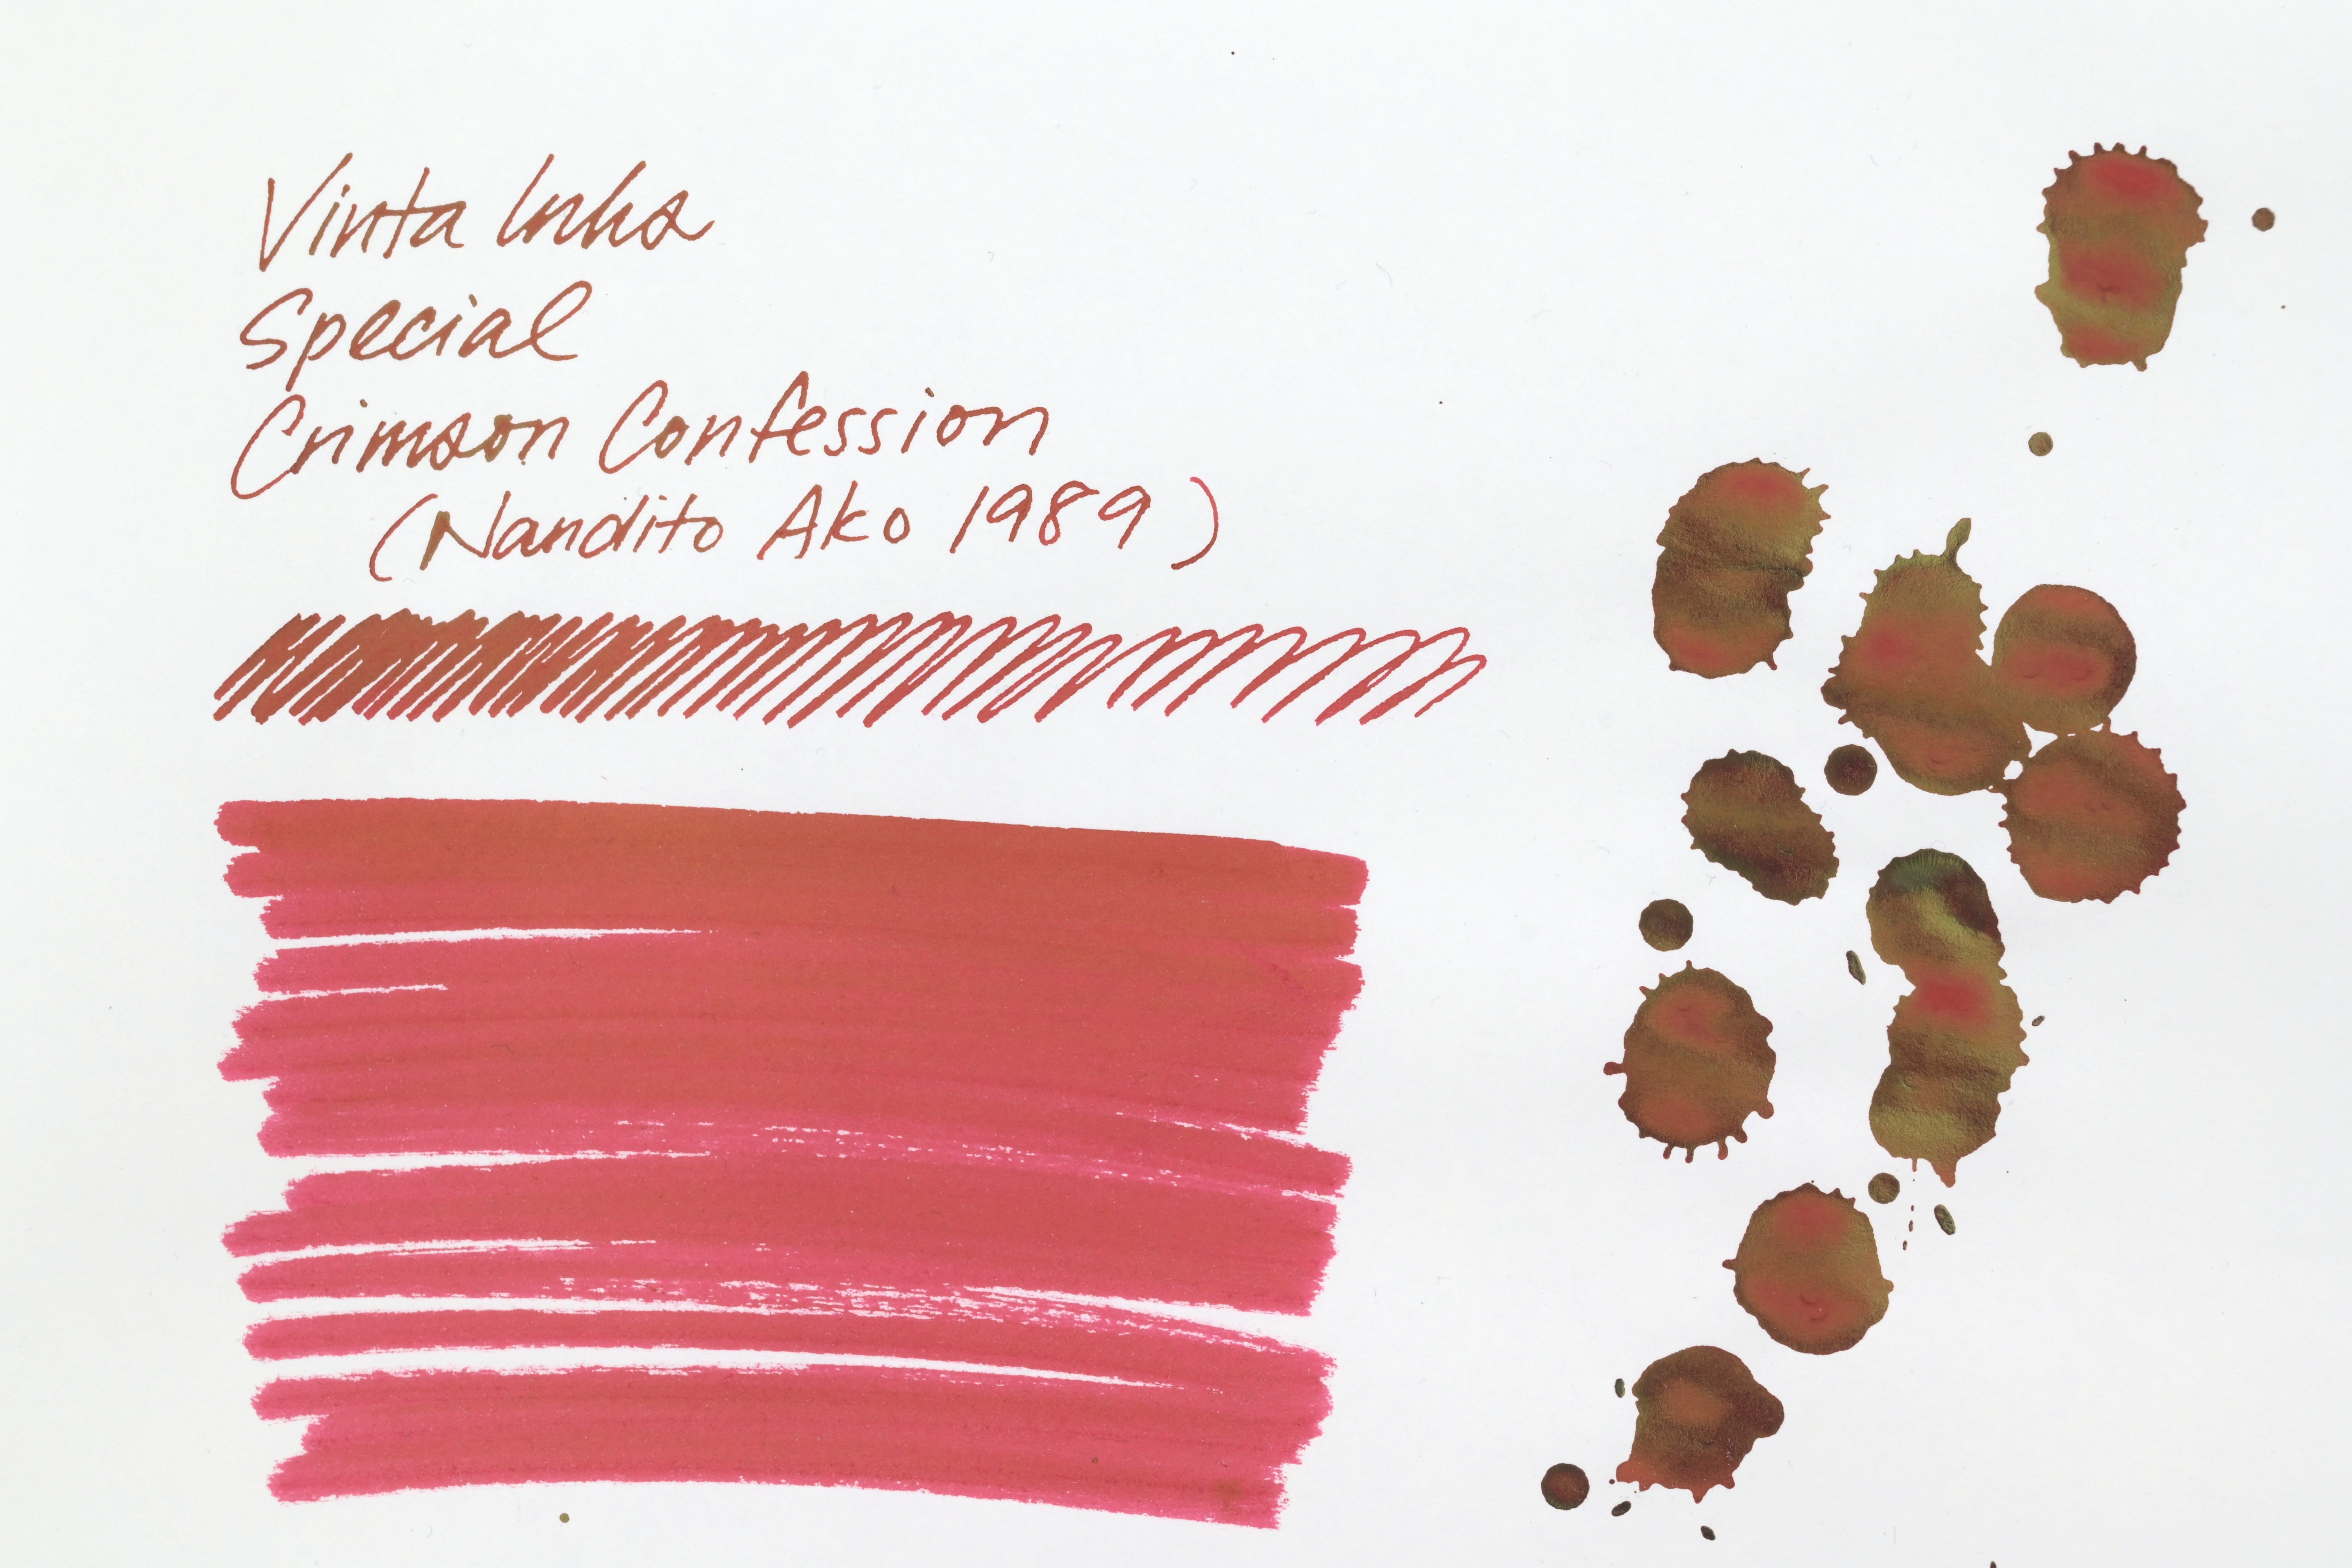 Vinta Inks
Special
Crimson Confession
(Nandito Ako 1989)